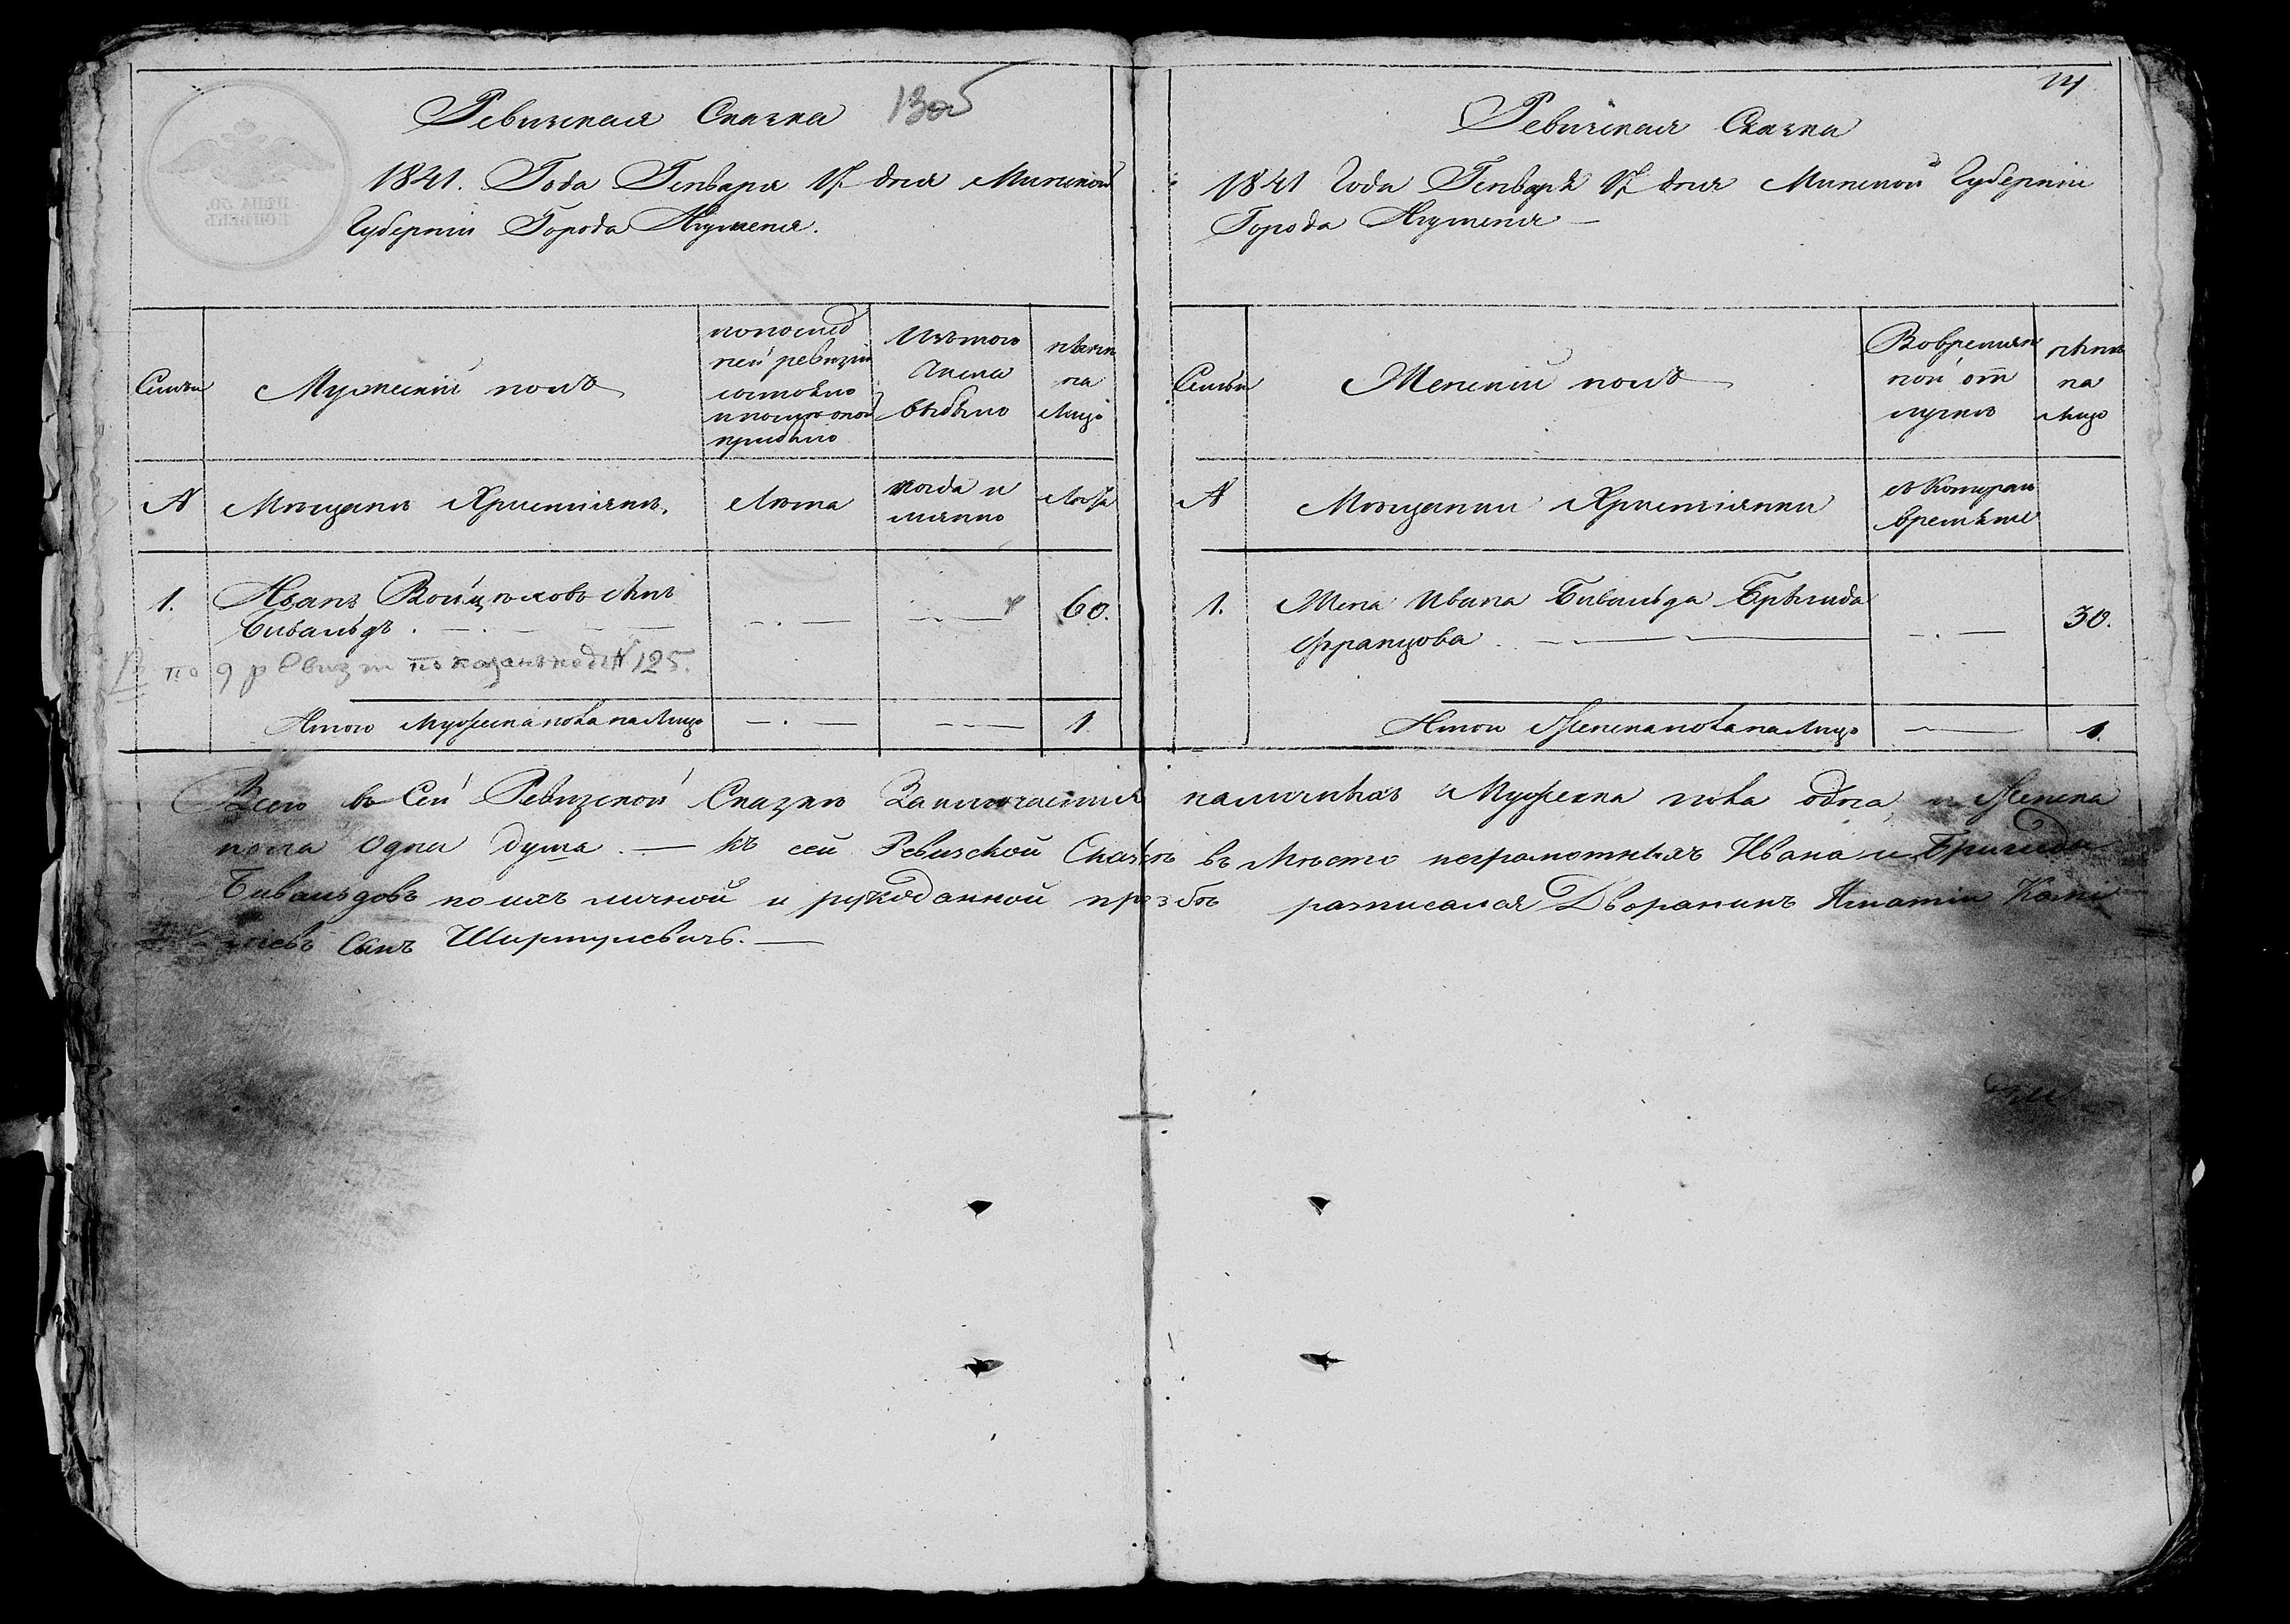 Ревизская Сказка 13об
1841. Года Генваря 17 дня Минской
Губерніи Города Игуменя.
ЦѢНА 50.
КОПѢЕКЪ
Семьи
Мужескій полъ
попослѣд
ней ревизіи
состояло
и послѣ оной
прибыло
Изътого
Числа
выбыло
нынѣ
на
Лицо
№
Мѣщане Христіяне.
Лѣта
когда и
имянно
Лѣта
1.
Иванъ Войцѣховъ сынъ
Бивальдъ.
60.
по 9 ревизіи показанъ подъ № 125.
Итого Мужеска пола на Лицо
1
14
Ревизская Сказка
1841 Года Генваря 17 дня Минской Губерніи
Города Игуменя
Семьи
Женскій полъ
Вовремян
ной от
лучкѣ
нынѣ
на
Лицо
№
Мѣщанки Христіянки
съ Котораго
времѣне
1.
Жена Ивана Бивальда Брыгида
Францова
30.
Итого Женска пола на Лицо
1.
Всего въ Сей Ревизской Сказкѣ Заключается наличныхъ Мужеска пола одна, и Женска
пола Одна душа. — Къ сей Ревизской Сказкѣ въ Мѣсто неграмотныхъ Ивана и Бригиды
Бивальдовъ по ихъ личной и рукоданной прозбѣ разписался Дворанинъ Игнатій
сынъ